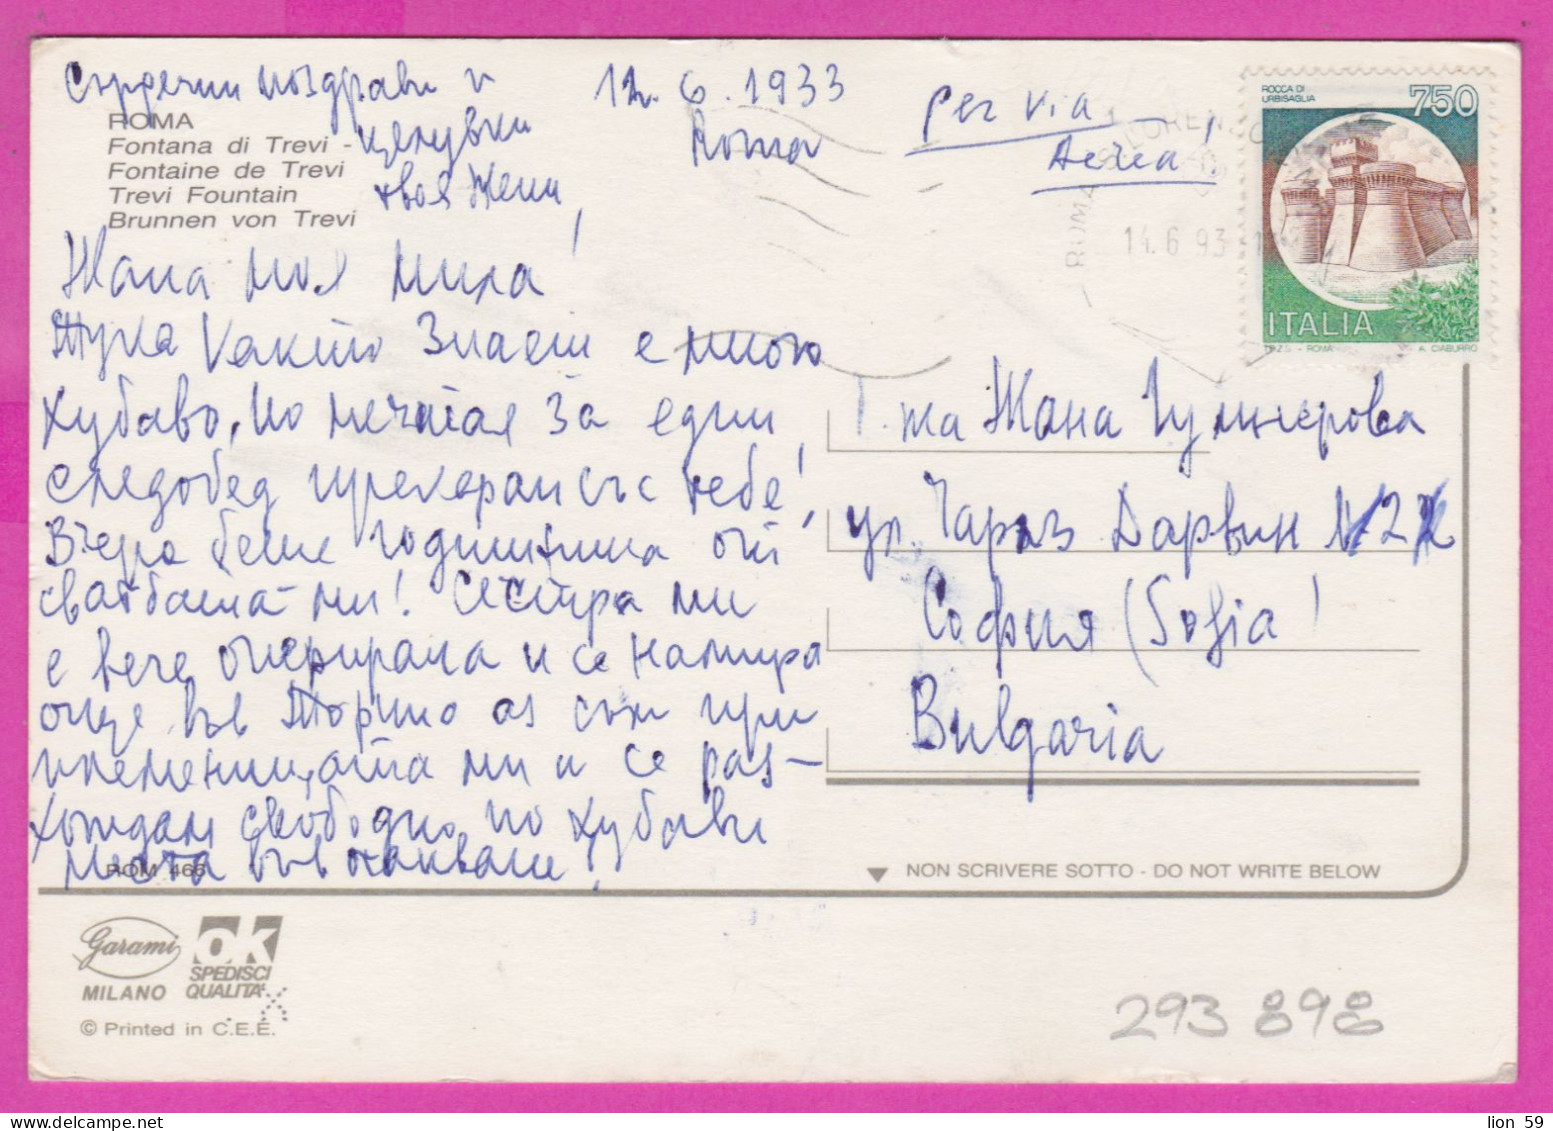 Сърдечни поздрави и
целувки
твоя Жени,
12.6.1933
Roma
per via
Aerea!
ROMA
Fontana di Trevi -
Fontaine de Trevi
Trevi Fountain
Brunnen von Trevi
ROCCA DI
URBISAGLIA
750
ITALIA
I.P.Z.S. - ROMA
A. CIABURRO
ROMA S. LORENZO
14.6.93
Жана моя мила!
Тука както знаеш е много
хубаво, но мечтая за един
следобед прекаран със тебе!
Вчера беше годишнина от
сватбата ми! Сестра ми
е вече оперирана и се намира
още във Торино аз съм при
племенницата ми и се раз-
хождам свободно по хубави
места във очакване!
Г. жа Жана
ул. Чарлз Дарвин №2
София (Sofia)
Bulgaria
ROM 466
NON SCRIVERE SOTTO - DO NOT WRITE BELOW
Garami
MILANO
OK
SPEDISCI
QUALITA'
© Printed in C.E.E.
293 898
lion 59